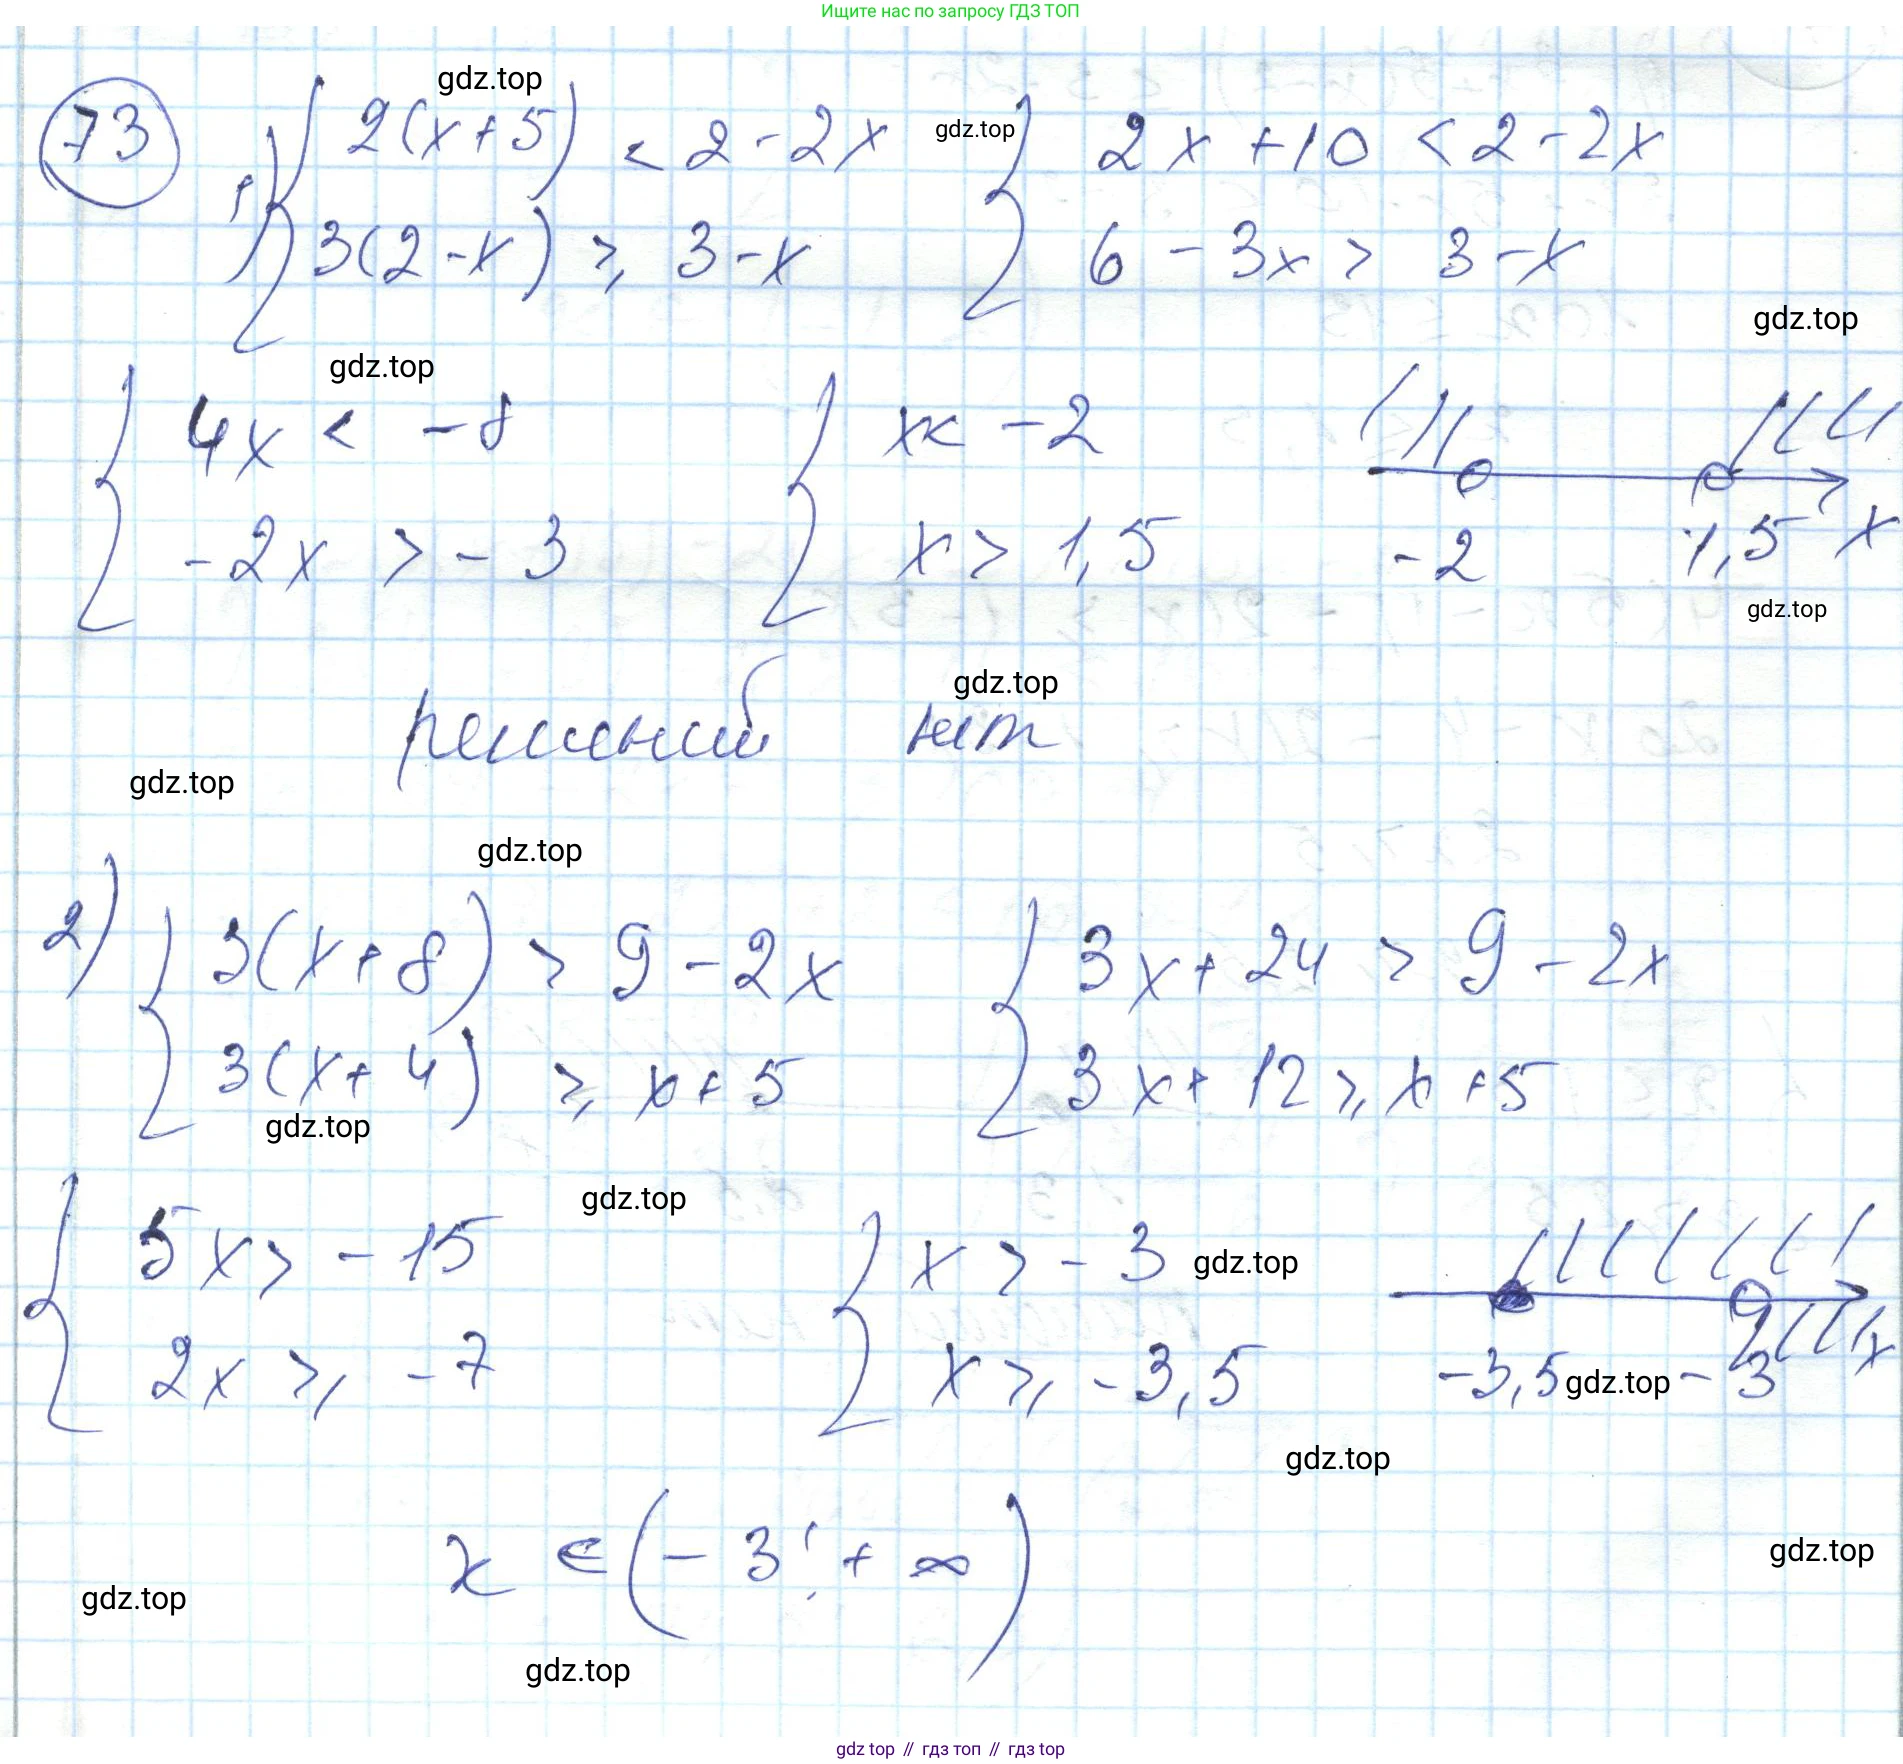 Ищите нас по запросу ГДЗ ТОП
gdz.top
73 1) { 2(x+5) < 2-2x gdz.top { 2x+10 < 2-2x
3(2-x) ⩾ 3-x 6-3x > 3-x
gdz.top
gdz.top
{ 4x < -8 { x < -2
-2x > -3 x > 1,5 -2 1,5 x
gdz.top
gdz.top
решений нет
gdz.top
gdz.top
2) { 3(x+8) > 9-2x { 3x+24 > 9-2x
3(x+4) ⩾ x+5 3x+12 ⩾ x+5
gdz.top
gdz.top
{ 5x > -15 { x > -3 gdz.top
2x ⩾ -7 x ⩾ -3,5 -3,5 gdz.top -3 x
gdz.top
x ∈ (-3; +∞)
gdz.top
gdz.top
gdz.top
gdz top // гдз топ // гдз top